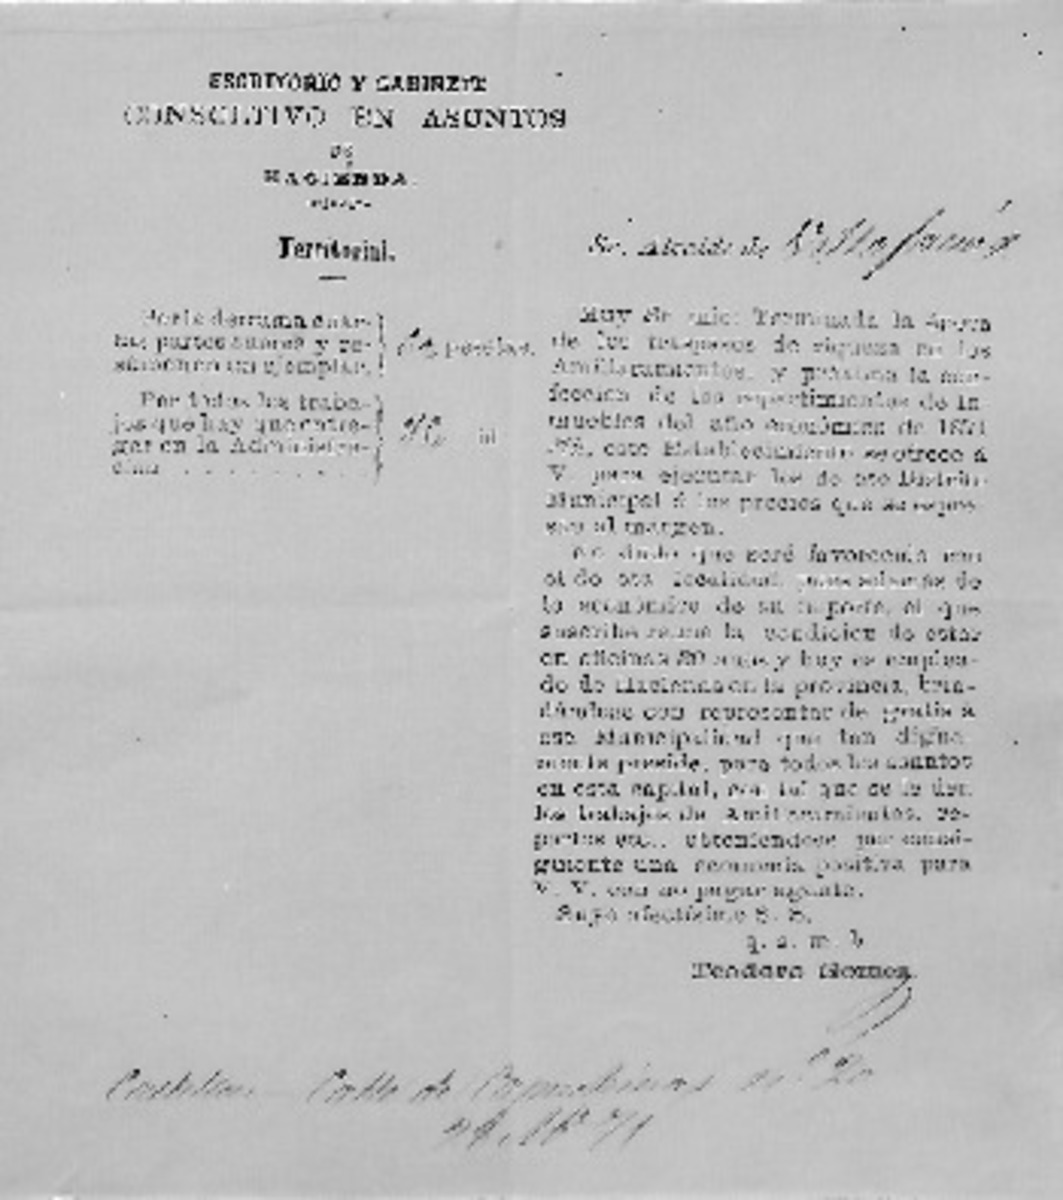 ESCRITORIO Y GABINETE
CONSULTIVO EN ASUNTOS
DE
HACIENDA.
Territorial.
Por la derrama
partes y re-
en un ejemplar.
pesetas.
Por todos los traba-
jos que hay que entre-
gar en la Administra-
cion . . . . . . . .
id
Sr. Alcalde de Villafamés
Muy Sr. mio: Terminada la época
de los traspasos de riqueza en los
Amillaramientos, y próxima la con-
feccion de los repartimientos de in
muebles del año económico de 1871
este Establecimiento se ofrece á
V. para ejecutar los de ese Distrito
Municipal á los precios que se expre-
san al margen.
No dudo que seré favorecido con
el de esa localidad, pues además de
lo económico de su importe, el que
suscribe reune la condicion de estar
en oficinas 20 años y hoy es emplea-
do de Hacienda en la provincia, brin-
dándose con representar de gratis á
esa Municipalidad que tan digna-
mente preside, para todos los asuntos
en esta capital, con tal que se le den
los trabajos de Amillaramientos, re-
partos etc., obteniéndose por consi-
guiente una economía positiva para
V. V. con no pagar agente.
Suyo afectísimo S. S.
q. s. m. b
Teodoro Gomez.
Castellon Calle de Capuchinos nº 20
71